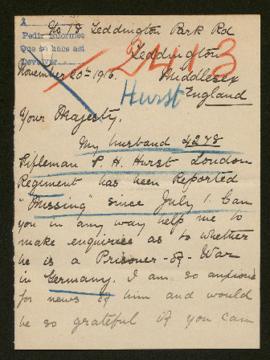 Pedir informes
No 18 Teddington Park Rd
Teddington
November 20th 1916.
Middlesex
England
2413
Hurst
Your Majesty.
My husband 4248
Rifleman P. H. Hurst London
Regiment has been Reported
"Missing" since July 1. Can
you in any way help me to
make enquiries as to whether
he is a Prisoner-of-War
in Germany. I am so anxious
for news of him and would
be so grateful if you can